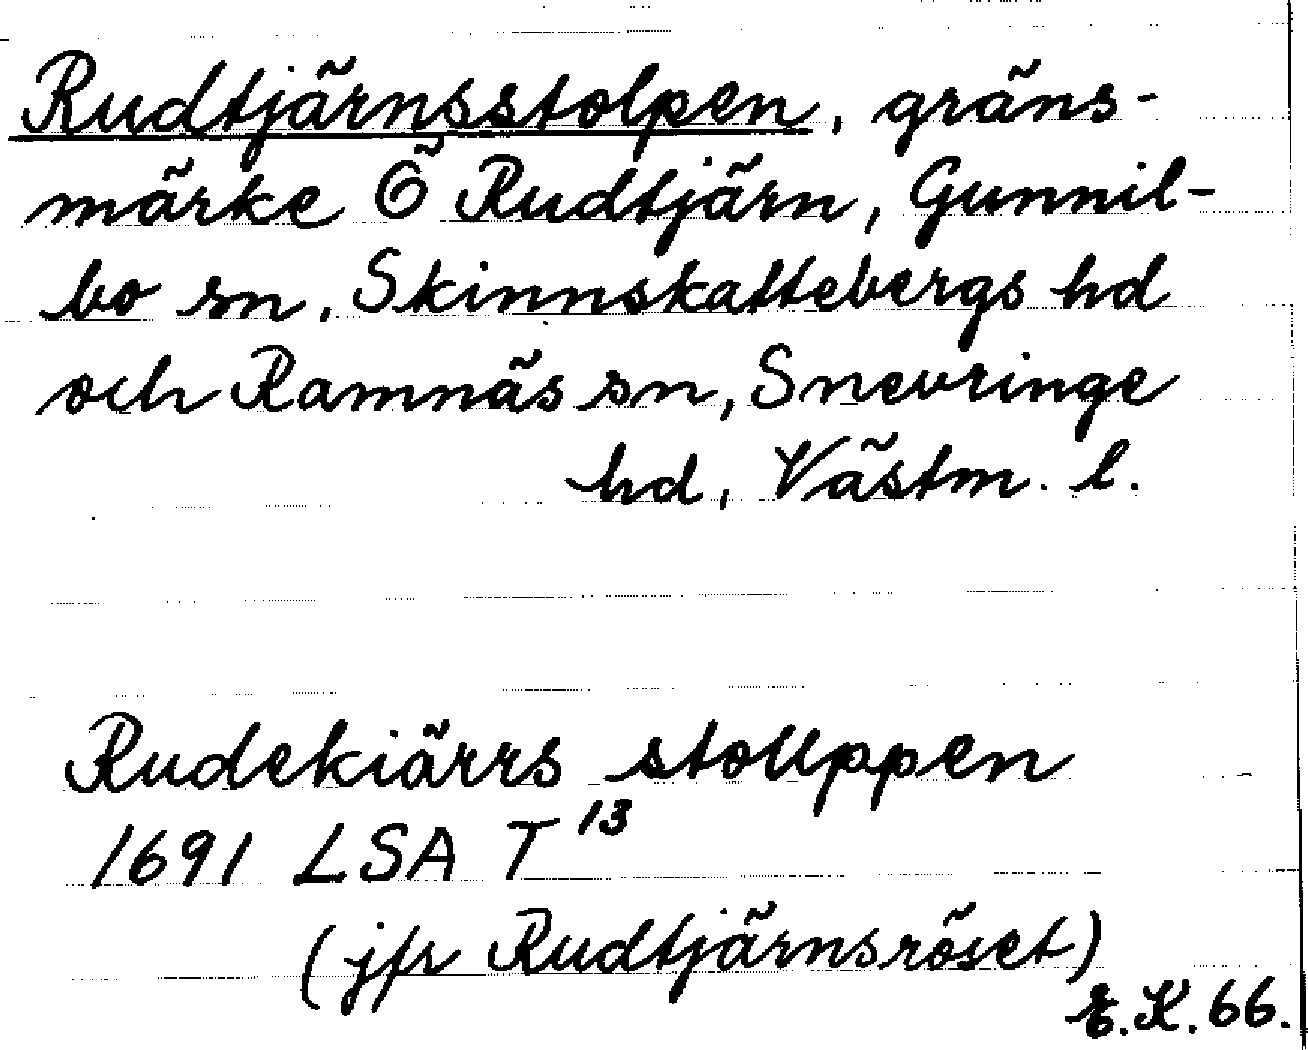 Rudtjärnsstolpen, gräns-
märke Ö Rudtjärn, Gunnil-
bo sn, Skinnskattebergs hd
och Ramnäs sn, Snevringe
hd, Västm. l.
Rudekiärrs stollppen
1691 LSA T 13
(jfr Rudtjärnsröset)
E.K. 66.